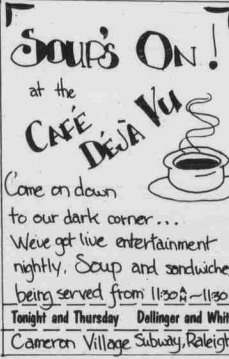 SOUP'S ON!
at the
CAFÉ
DÉJÀ VU
Come on down
to our dark corner...
We've got live entertainment
nightly. Soup and sandwiche
being served from 11:30 A ~ 11:30
Tonight and Thursday Dellinger and Whit
Cameron Village Subway, Raleigh